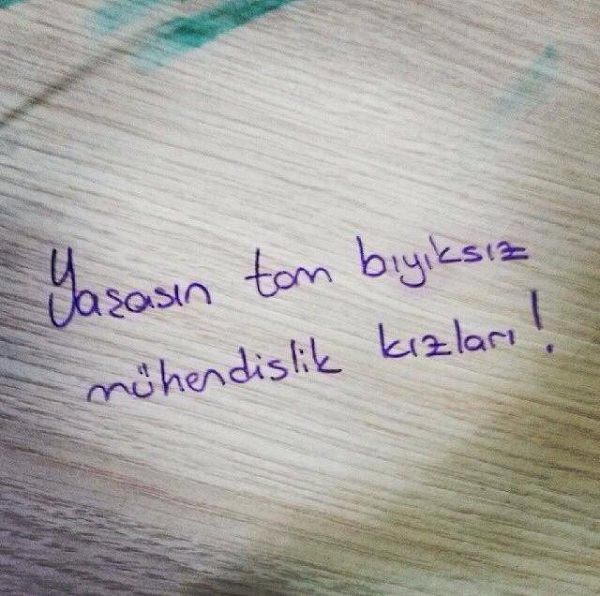 Yaşasın tam bıyıksız
mühendislik kızları!